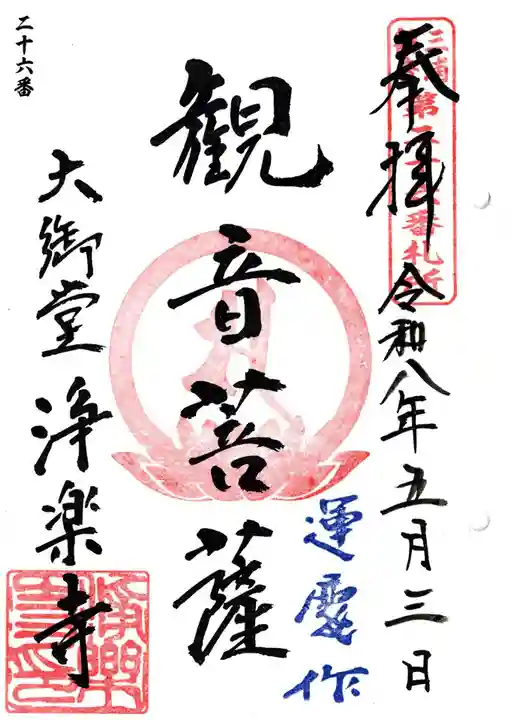 奉拝 令和八年五月三日
三浦 第二十六番札所
観音菩薩
運慶作
大御堂 浄楽寺
二十六番